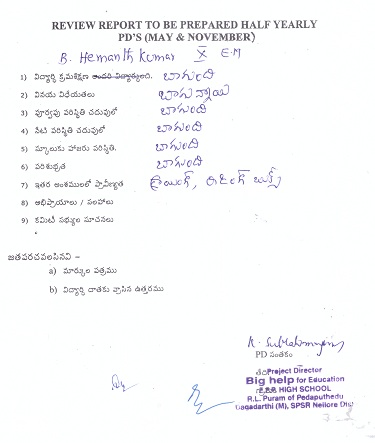 REVIEW REPORT TO BE PREPARED HALF YEARLY
PD'S (MAY & NOVEMBER)
B. Hemanth Kumar X E.M
1) విద్యార్థి క్రమశిక్షణ అందరి విద్యార్థులది. బాగుంది
2) వినయ విధేయతలు బాగున్నాయి
3) పూర్వపు పరిస్థితి చదువులో బాగుంది
4) నేటి పరిస్థితి చదువులో బాగుంది
5) స్కూలుకు హాజరు పరిస్థితి. బాగుంది
6) పరిశుభ్రత బాగుంది
7) ఇతర అంశములలో ప్రావీణ్యత డ్రాయింగ్, రీడింగ్ బుక్స్
8) అభిప్రాయాలు / సలహాలు
9) కమిటీ సభ్యుల సూచనలు
జతపరచవలసినవి –
a) మార్కుల పత్రము
b) విద్యార్థి దాతకు వ్రాసిన ఉత్తరము
K. Subrahmanyam
PD సంతకం
Project Director
Big help for Education
HIGH SCHOOL
R.L. Puram of Pedaputhedu
Dagadarthi (M), SPSR Nellore Dist